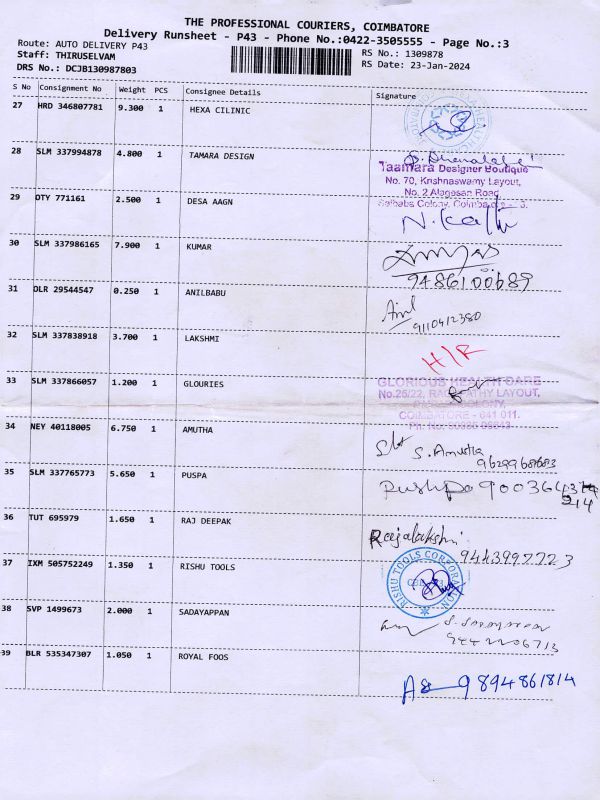 THE PROFESSIONAL COURIERS, COIMBATORE
Delivery Runsheet - P43 - Phone No.:0422-3505555 - Page No.:3
Route: AUTO DELIVERY P43
Staff: THIRUSELVAM
DRS No.: DCJB130987803
RS No.: 1309878
RS Date: 23-Jan-2024
S No Consignment No Weight PCS Consignee Details Signature
27 HRD 346807781 9.300 1 HEXA CILINIC
28 SLM 337994878 4.800 1 TAMARA DESIGN
Taamara Designer Boutique
No. 70, Krishnaswamy Layout,
No. 2 Alagesan Road
Saibaba Colony, Coimbatore -
29 OTY 771161 2.500 1 DESA AAGN
N. Kathi
30 SLM 337986165 7.900 1 KUMAR
9486100689
31 DLR 29544547 0.250 1 ANILBABU
Anil
9110412380
32 SLM 337838918 3.700 1 LAKSHMI
H/R
33 SLM 337866057 1.200 1 GLOURIES
GLORIOUS HEALTH CARE
No.26/22, LAYOUT,
COIMBATORE - 641 011.
34 NEY 40118005 6.750 1 AMUTHA
S. Amutha
35 SLM 337765773 5.650 1 PUSPA
Pushpa 900364
214
36 TUT 695979 1.650 1 RAJ DEEPAK
Raajalakshmi
37 IXM 505752249 1.350 1 RISHU TOOLS
RISHU TOOLS CORPORATION
38 SVP 1499673 2.000 1 SADAYAPPAN
S. SADAYAPPAN
9442206713
39 BLR 535347307 1.050 1 ROYAL FOOS
9894861814